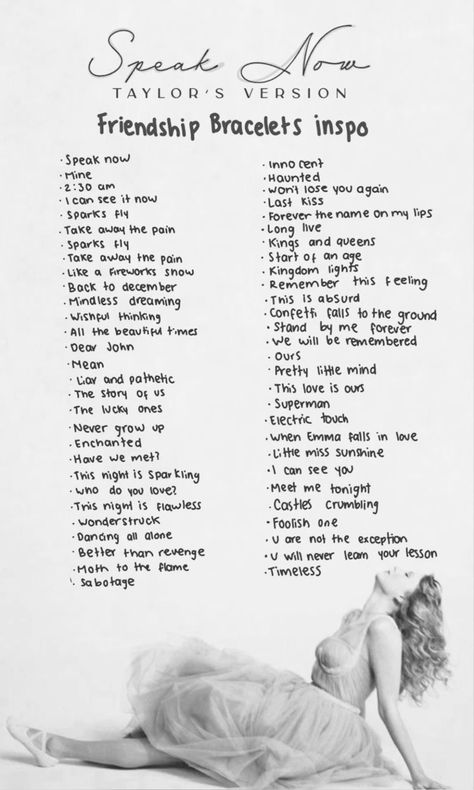 Speak Now
TAYLOR'S VERSION
Friendship Bracelets inspo
· Speak now
· Mine
· 2:30 am
· I can see it now
· Sparks fly
· Take away the pain
· Sparks fly
· Take away the pain
· Like a fireworks show
· Back to december
· Mindless dreaming
· Wishful thinking
· All the beautiful times
· Dear John
· Mean
· Liar and pathetic
· The story of us
· The lucky ones
· Never grow up
· Enchanted
· Have we met?
· This night is sparkling
· who do you love?
· This night is flawless
· Wonderstruck
· Dancing all alone
· Better than revenge
· Moth to the flame
· Sabotage
· Innocent
· Haunted
· Won't lose you again
· Last kiss
· Forever the name on my lips
· Long live
· Kings and queens
· Start of an age
· Kingdom lights
· Remember this feeling
· This is absurd
· Confetti falls to the ground
· Stand by me forever
· We will be remembered
· Ours
· Pretty little mind
· This love is ours
· Superman
· Electric touch
· When Emma falls in love
· Little miss sunshine
· I can see you
· Meet me tonight
· Castles crumbling
· Foolish one
· U are not the exception
· U will never learn your lesson
· Timeless